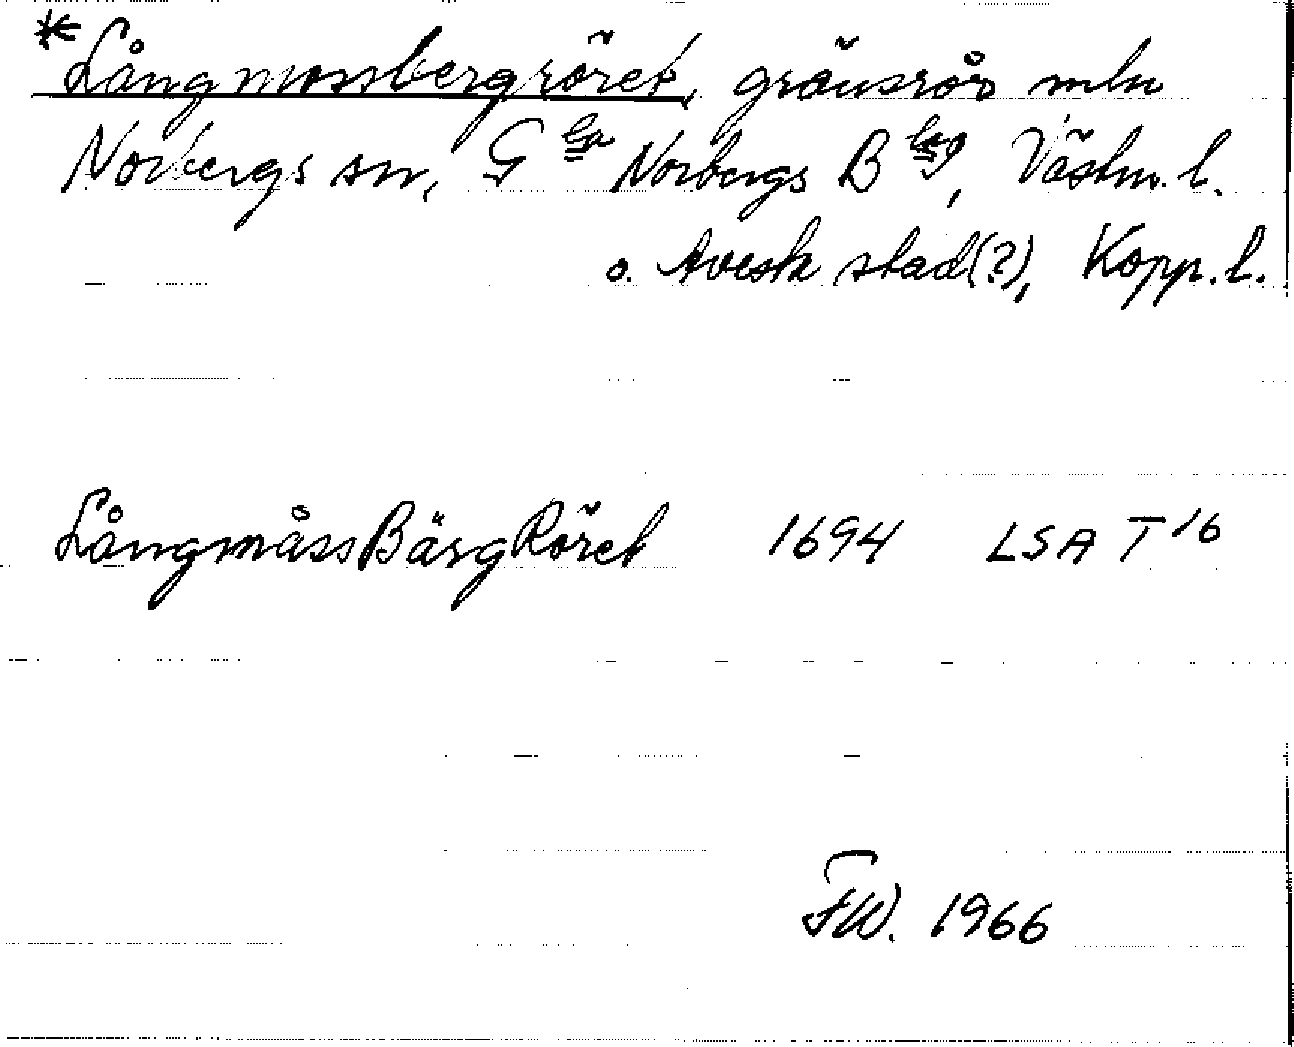 *Långmossbergröret, gränsrör mln
Norbergs sn, G la Norbergs Bslag, Västm. l.
o. Avesta stad(?), Kopp. l.
LångmåssBärgRöret 1694 LSA T 16
FW. 1966